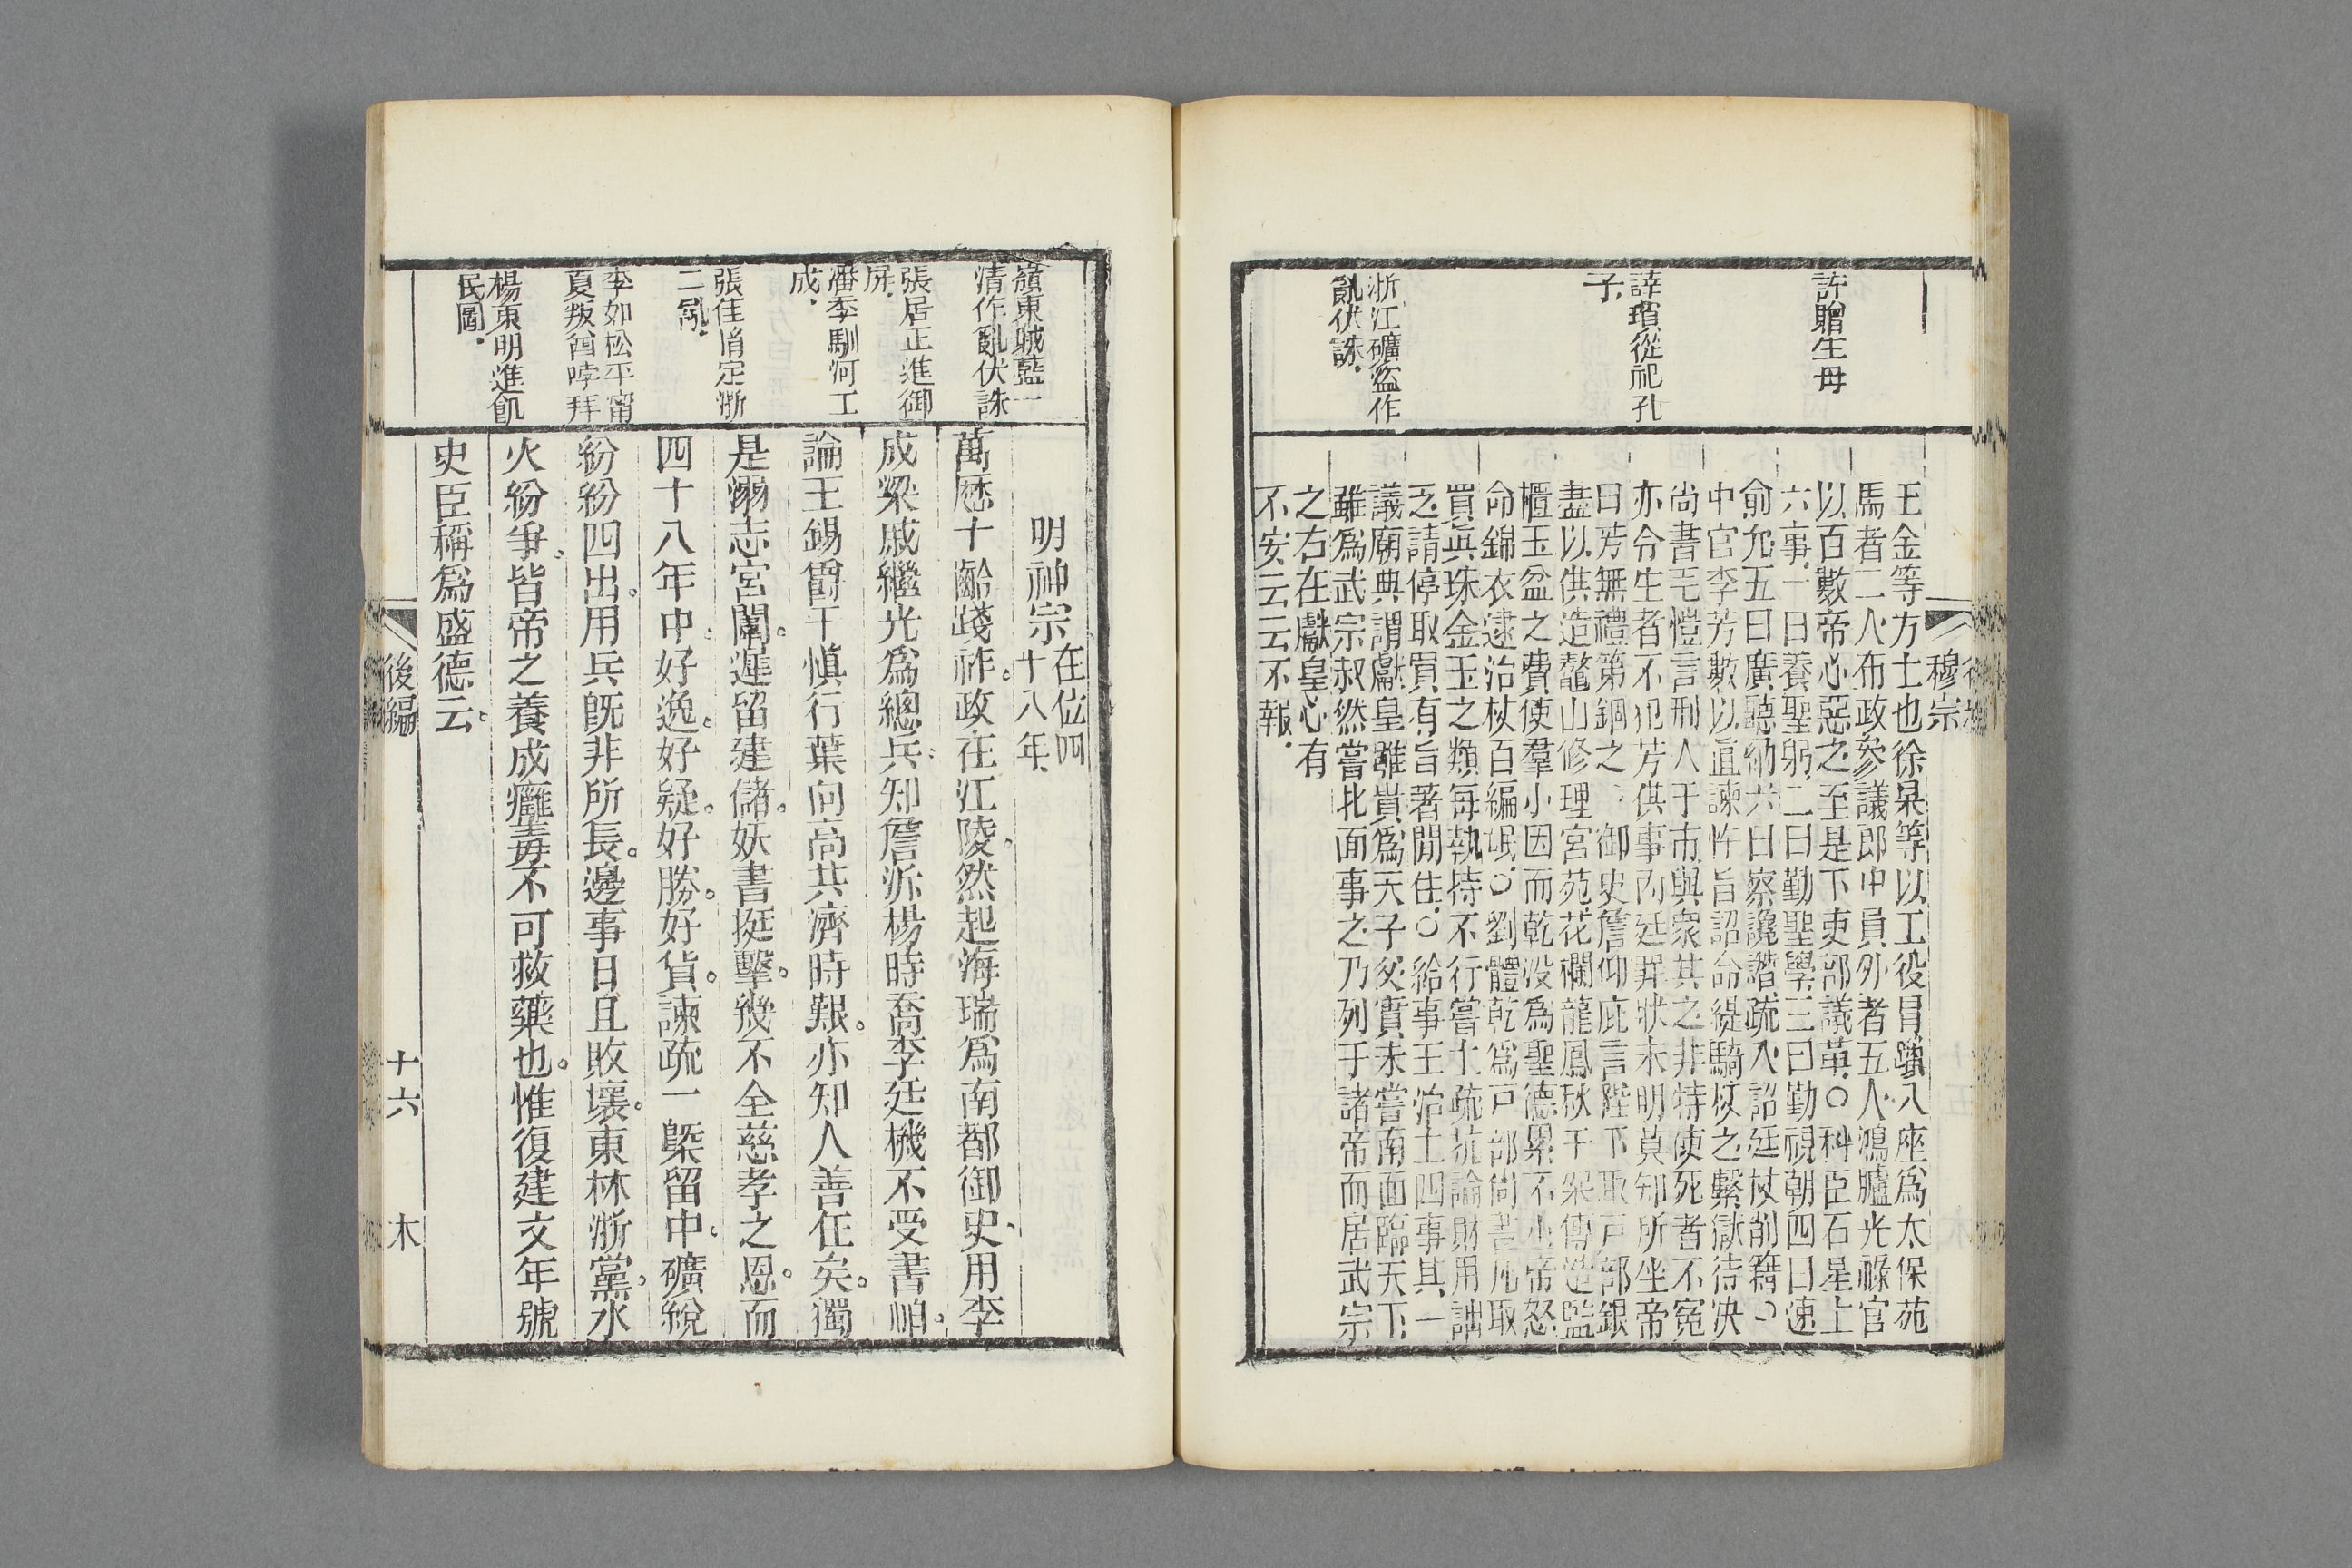 許贈生母
薛瑄從祀孔
子
浙江礦盜作
亂伏誅
穆宗
王金等方士也徐杲等以工役冒躐八座爲太保苑
馬者二人布政參議郎中員外者五人鴻臚光祿官
以百數帝心惡之至是下吏部議革○科臣石星上
六事一曰養聖躬二曰勤聖學三曰勤視朝四曰速
俞允五曰廣聽納六曰察讒譖疏入詔廷杖削籍○
中官李芳數以直諫忤旨詔命緹騎杖之繫獄待決
尚書毛愷言刑人于市與衆共之非特使死者不冤
亦令生者不犯芳供事內廷罪狀未明莫知所坐帝
曰芳無禮第錮之○御史詹仰庇言陛下取戶部銀
盡以供造鼇山修理宮苑花欄龍鳳秋千架傳造監
櫃玉盆之費使羣小因而乾沒爲聖德累不小帝怒
命錦衣逮治杖百編氓○劉體乾爲戶部尚書凡取
買眞珠金玉之類每執持不行嘗上疏抗論財用詘
乏請停取買有旨著閒住○給事王治上四事其一
議廟典謂獻皇雖貴爲天子父實未嘗南面臨天下
雖爲武宗叔然嘗北面事之乃列于諸帝而居武宗
之右在獻皇心有
不安云云不報
嶺東賊藍一
清作亂伏誅
張居正進御
屏
潘季馴河工
成
張佳胤定浙
二亂
李如松平甯
夏叛酋哱拜
楊東明進飢
民圖
明神宗在位四
十八年
萬厯十齡踐祚政在江陵然起海瑞爲南都御史用李
成梁戚繼光爲總兵知詹泝楊時喬李廷機不受書帕
論王錫爵于愼行葉向高共濟時艱亦知人善任矣獨
是溺志宮闈遲留建儲妖書挺擊幾不全慈孝之恩而
四十八年中好逸好疑好勝好貨諫疏一槩留中礦稅
紛紛四出用兵旣非所長邊事日且敗壞東林浙黨水
火紛爭皆帝之養成癰毒不可救藥也惟復建文年號
史臣稱爲盛德云
後編
十六
木